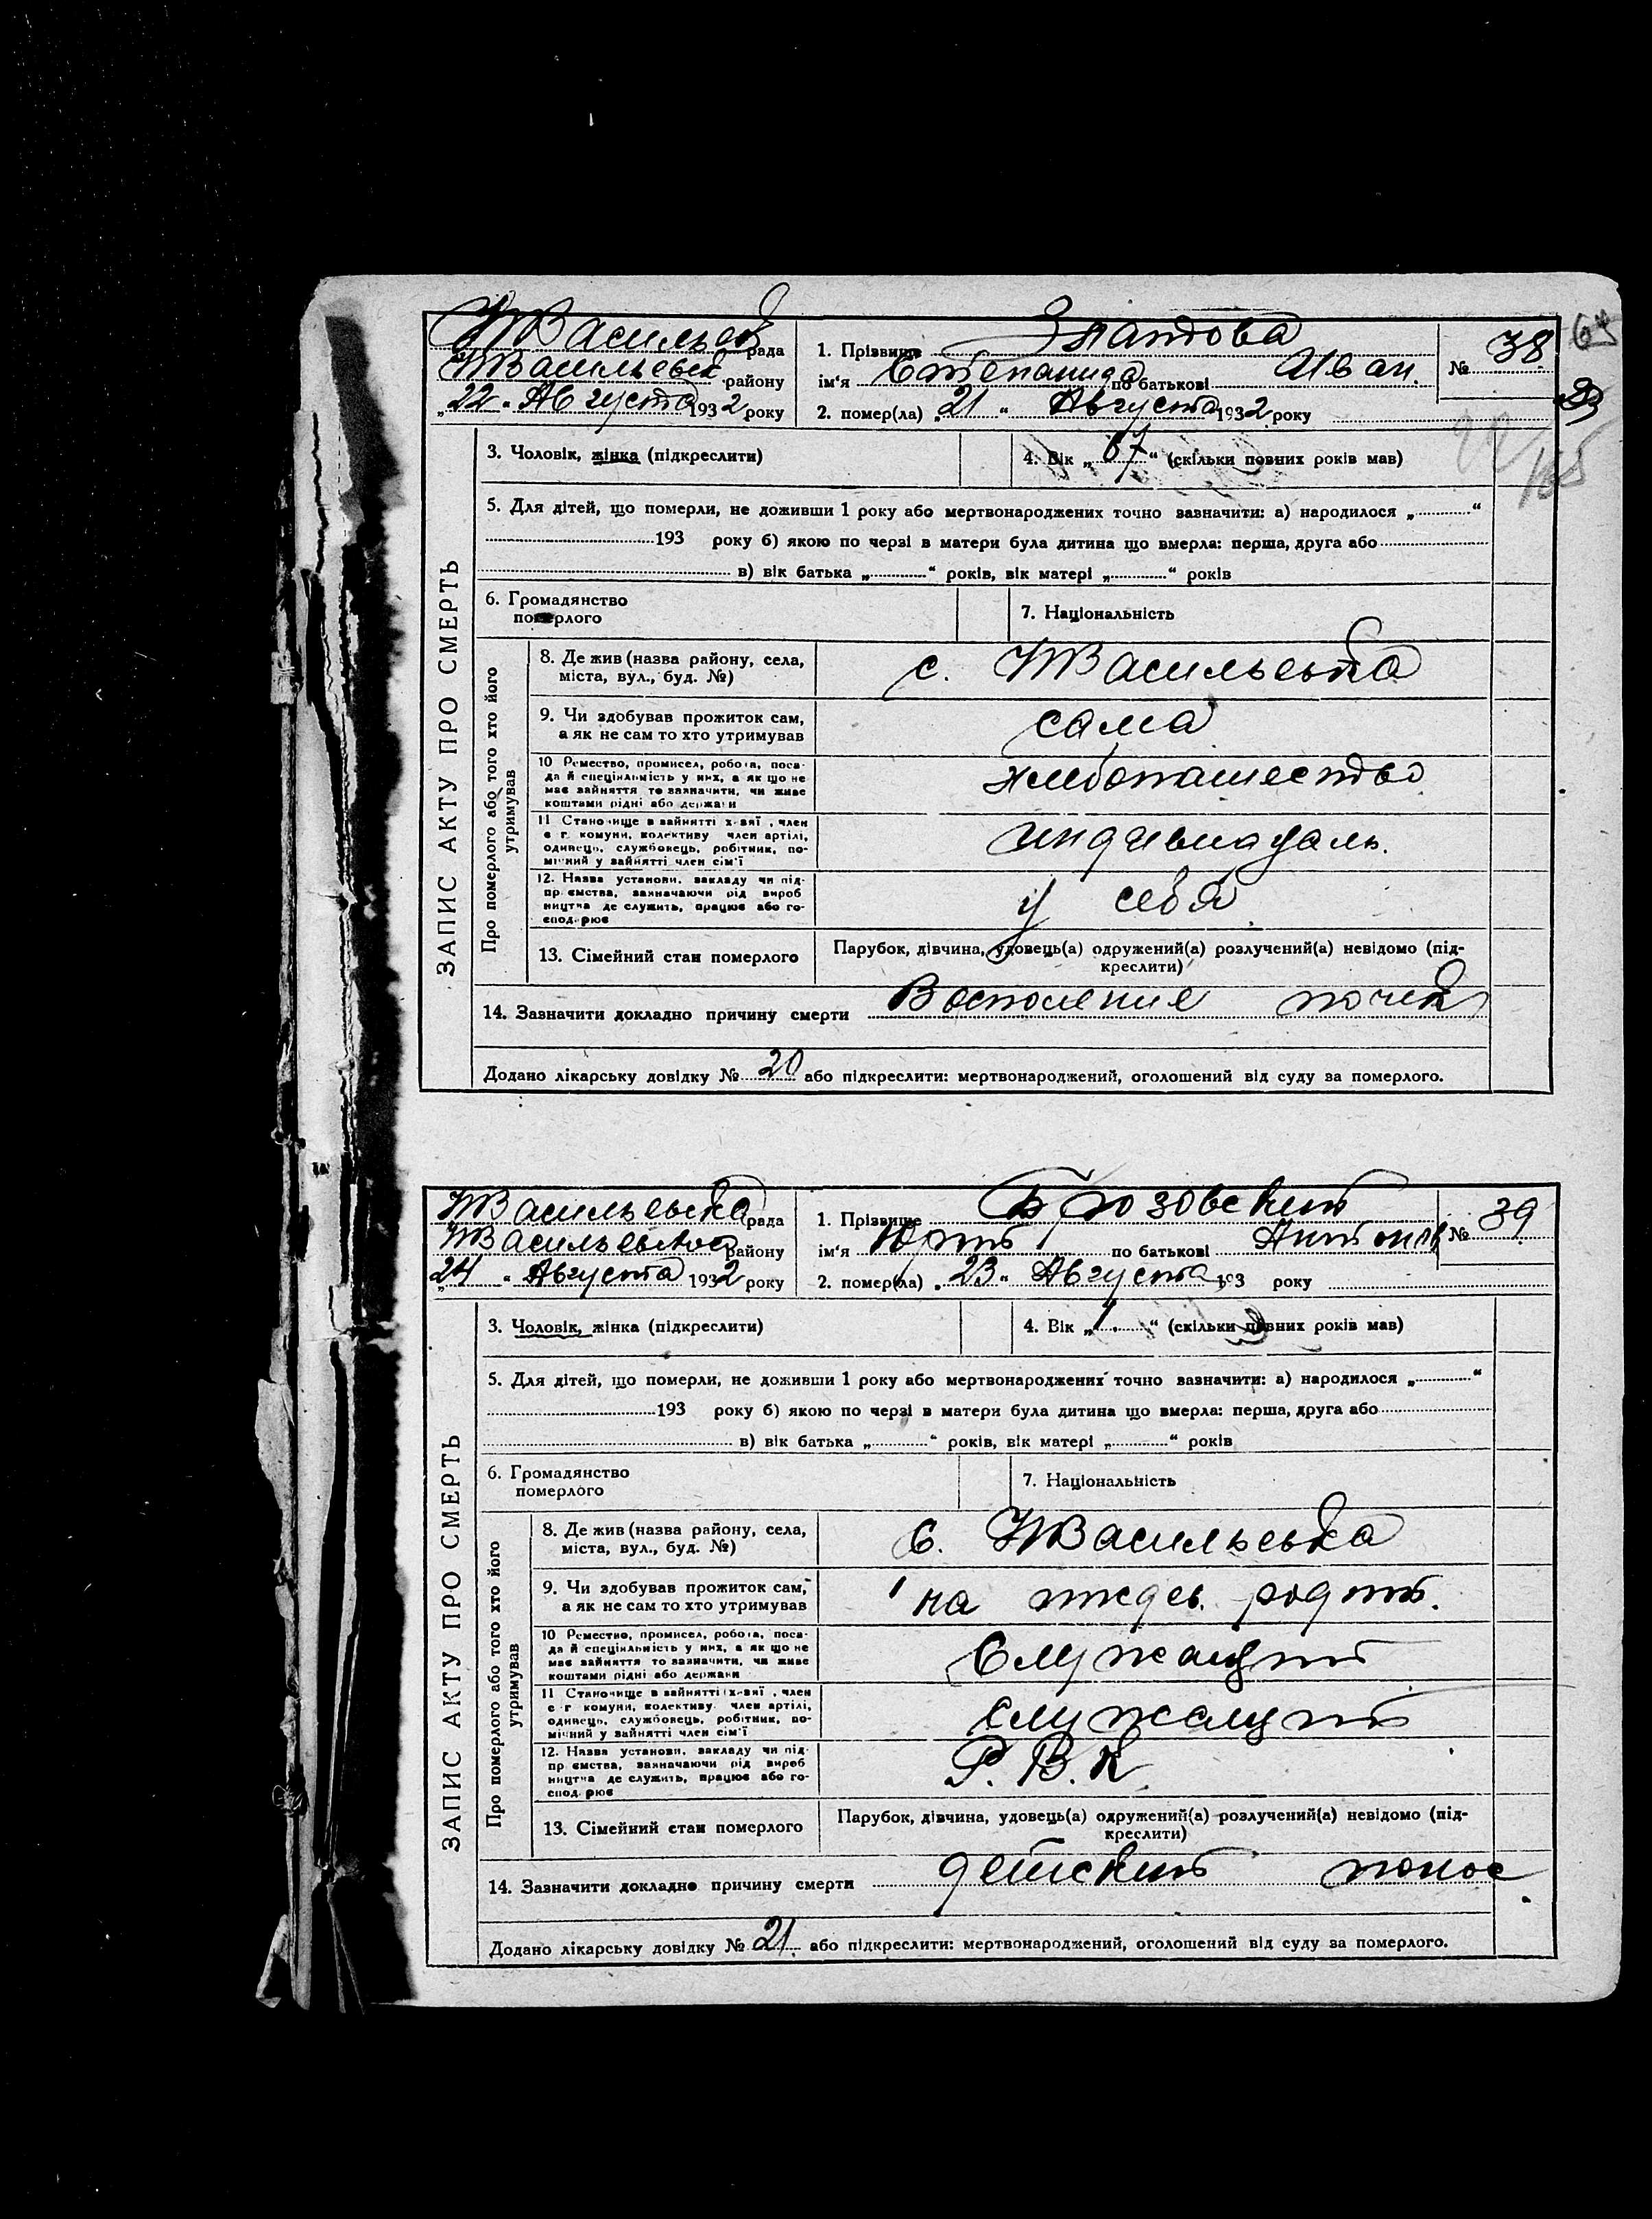 НВасильев рада
НВасильевск району
„22“ Августа 1932 року
1. Прізвище Знатова
ім'я Степанида по батькові Иван.
2. помер(ла) „21“ Августа 1932 року
№ 38
64
3. Чоловік, жінка (підкреслити)
4. Вік „67“ (скільки повних років мав)
5. Для дітей, що померли, не доживши 1 року або мертвонароджених точно зазначити: а) народилося „ “
193 року б) якою по черзі в матери була дитина що вмерла: перша, друга або
в) вік батька „ “ років, вік матері „ “ років
6. Громадянство
померлого
7. Національність
ЗАПИС АКТУ ПРО СМЕРТЬ
Про померлого або того хто його
утримував
8. Де жив (назва району, села,
міста, вул., буд. №)
с. НВасильевка
9. Чи здобував прожиток сам,
а як не сам то хто утримував
сама
10 Ремество, промисел, робота, поса-
да й спеціяльність у них, а як що не
має зайняття то зазначити, чи живе
коштами рідні або держави
хлебопашество
11 Становище в зайнятті х-вяї , член
с г. комуни, колективу член артілі,
одинець, службовець, робітник, по-
мічний у зайнятті член сім'ї
индивидуаль.
12. Назва установи, закладу чи під-
пр ємства, зазначаючи рід вироб
ництва де служить, працює або го-
спод-рює
у себя
13. Сімейний стан померлого
Парубок, дівчина, удовець(а) одружений(а) розлучений(а) невідомо (під-
креслити)
14. Зазначити докладно причину смерти Восполение почек
Додано лікарську довідку № 20 або підкреслити: мертвонароджений, оголошений від суду за померлого.
НВасильевка рада
НВасильевкос району
„24“ Августа 1932 року
1. Прізвище Брозовский
ім'я Юрий по батькові Антонов
2. помер(ла) „23“ Августа 193 року
№ 39
3. Чоловік, жінка (підкреслити)
4. Вік „1.“ (скільки повних років мав)
5. Для дітей, що померли, не доживши 1 року або мертвонароджених точно зазначити: а) народилося „ “
193 року б) якою по черзі в матери була дитина що вмерла: перша, друга або
в) вік батька „ “ років, вік матері „ “ років
6. Громадянство
померлого
7. Національність
ЗАПИС АКТУ ПРО СМЕРТЬ
Про померлого або того хто його
утримував
8. Де жив (назва району, села,
міста, вул., буд. №)
с. НВасильевка
9. Чи здобував прожиток сам,
а як не сам то хто утримував
на иждев. родит.
10 Ремество, промисел, робота, поса-
да й спеціяльність у них, а як що не
має зайняття то зазначити, чи живе
коштами рідні або держави
Служащий
11 Становище в зайнятті х-вяї , член
с г комуни, колективу член артілі,
одинець, службовець, робітник, по-
мічний у зайнятті член сім'ї
служащий
12. Назва установи, закладу чи під-
пр ємства, зазначаючи рід вироб
ництва де служить, працює або го-
спод рює
Р. В. К
13. Сімейний стан померлого
Парубок, дівчина, удовець(а) одружений(а) розлучений(а) невідомо (під-
креслити)
14. Зазначити докладно причину смерти детский понос
Додано лікарську довідку № 21 або підкреслити: мертвонароджений, оголошений від суду за померлого.